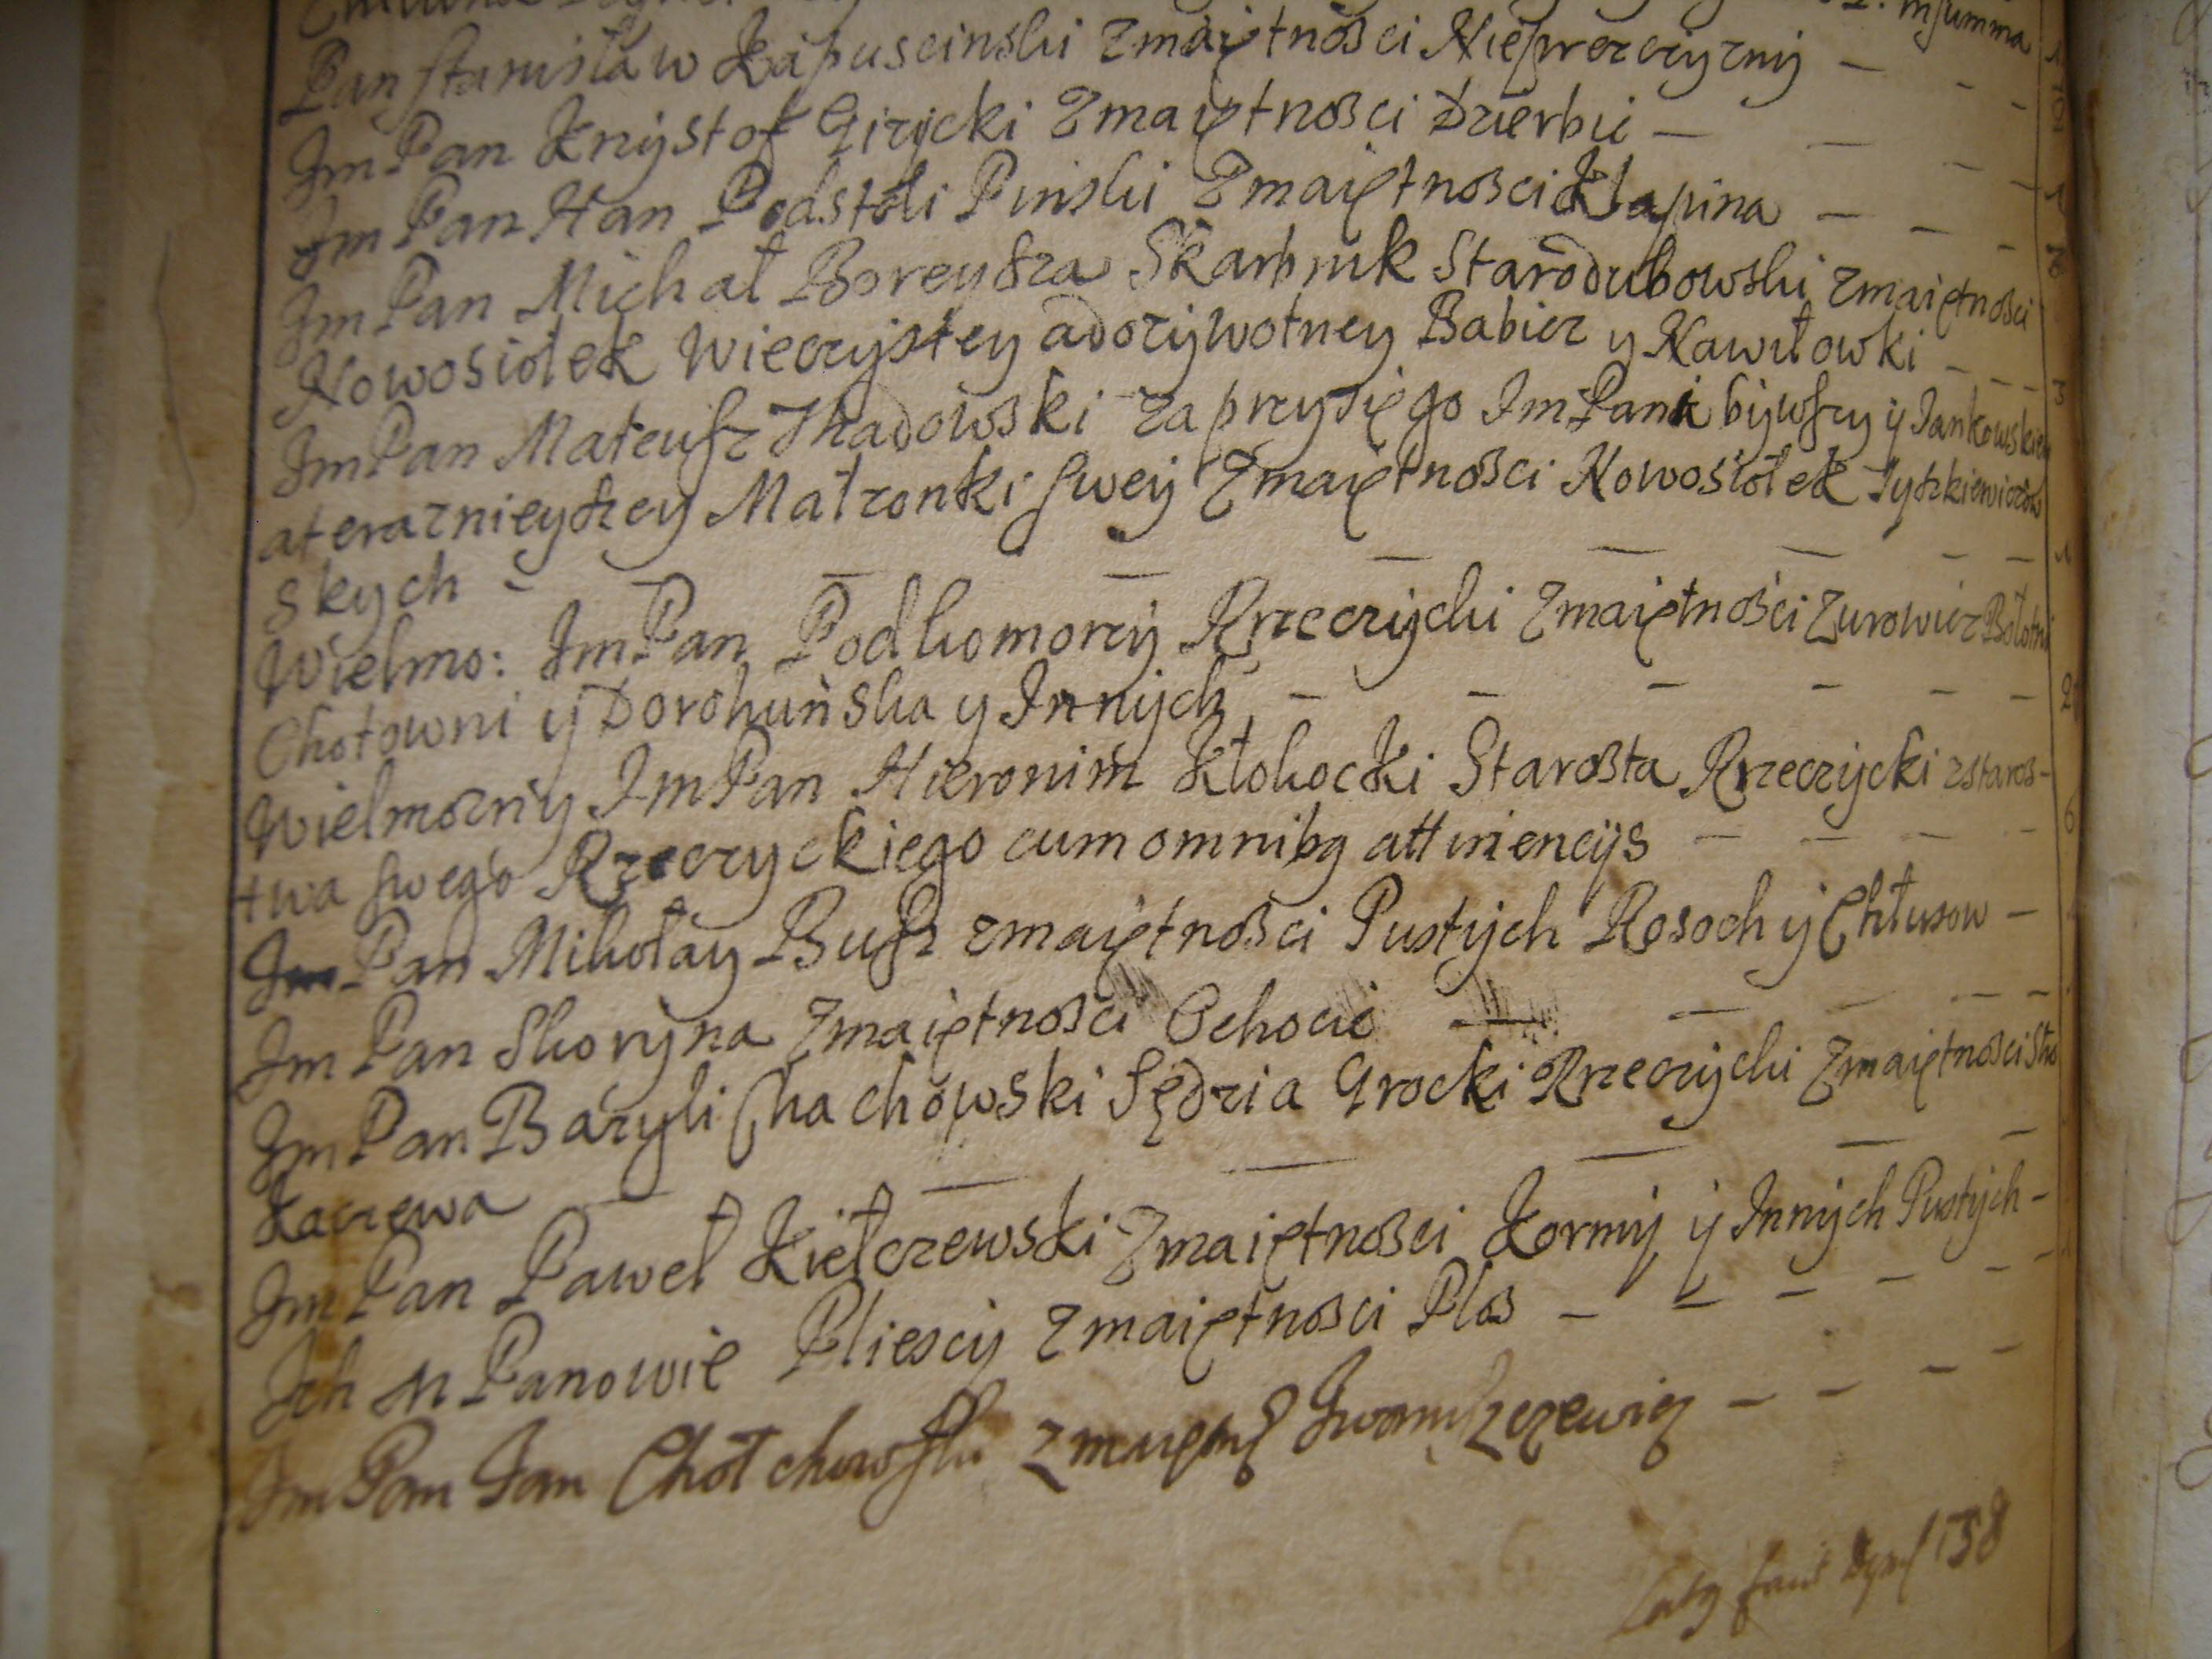 in summa
Pan Stanisław Kapuscinski Zmaiętnosci Nieprzeczyzny
Im Pan Krzysztof Giżycki Zmaiętnosci Dzierbii
Im Pan Han Podstoli Pinski Zmaiętnosci Klapina
Im Pan Michał Boreysza Skarbnik Starodubowski zmaiętnosci
Nowosiołek Wieczystey adożywotney Babicz y Nawiłowki
Im Pan Mateusz Zadowski za przysięgo Im Pani bywszy ÿ Jankowskiey
aterazniejszey Małzonki swey Zmaiętnosci Nowosiołek Tyszkiewiczow
skych
Wielmo: Im Pan Podkomorzy Rzeczycki Zmaiętnosci Zurowicz Bołotni
Chotowni y Dorohuńska y Innÿch
Wielmozny Im Pan Hieronim Kłokocki Starosta Rzeczycki zstaros-
twa swego Rzeczyckiego cum omnibq attinencijs
Pan Mikołay Busz zmaiętnosci Pustych Rosoch ÿ Chłusow
Im Pan Skoryna Zmaiętnosci
Im Pan Bazyli Chachowski Sędzia Grocki Rzeczycki Zmaiętnosci
Kaczewa
Im Pan Paweł Kiełczewski Zmaiętnosci Kormy ÿ Innych Pustÿch
Ich M Panowie Pliescy Zmaiętnosci Plos
Im Pan Jan Chołchowski Iwaniszczewicz
158